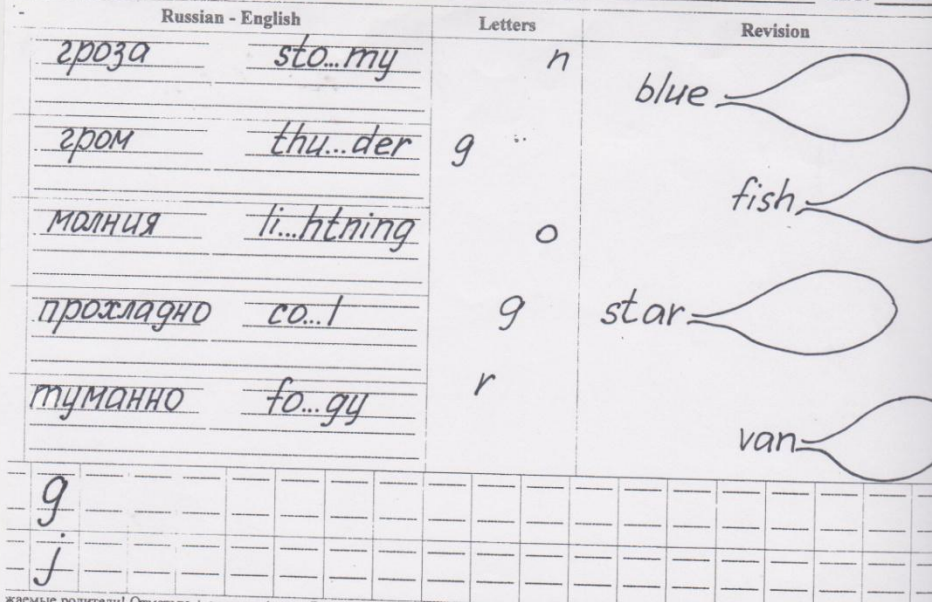 Russian - English Letters Revision
гроза sto...my n
blue
гром thu...der g
fish
молния li...htning o
прохладно co...l g star
туманно fo...gy r
van
g
j